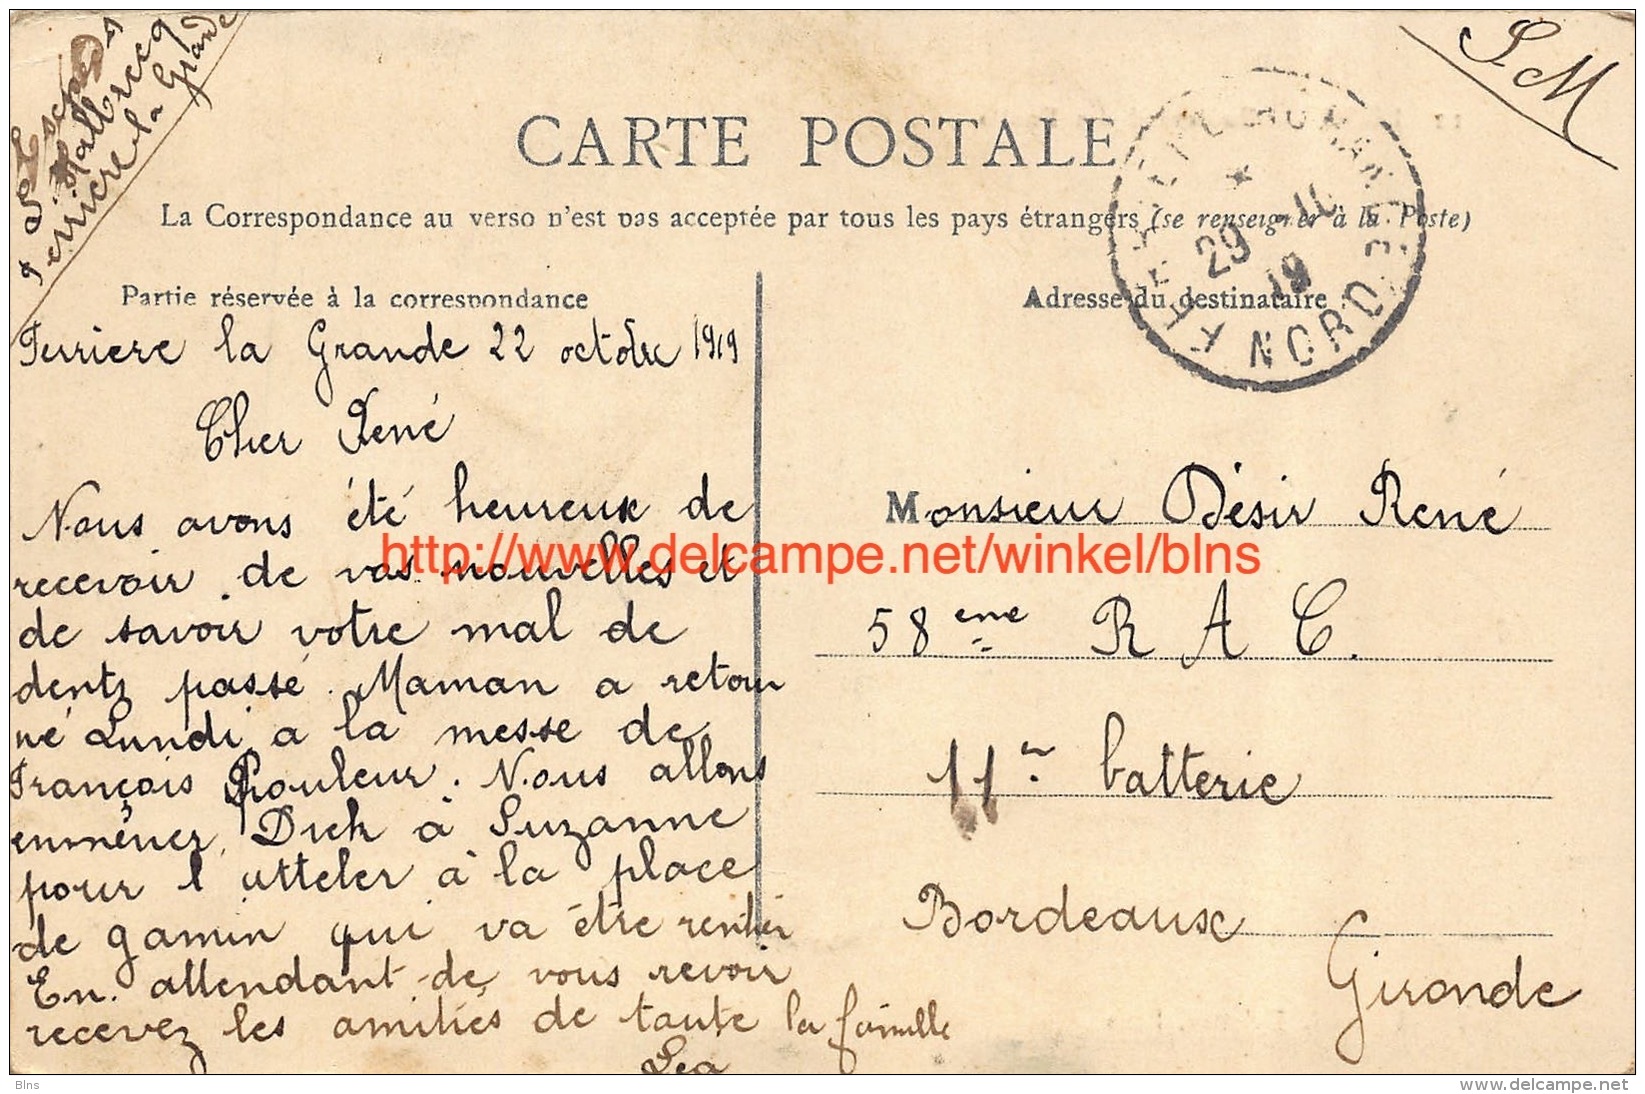 S. M
CARTE POSTALE
La Correspondance au verso n'est pas acceptée par tous les pays étrangers (se renseigner à la Poste)
Partie réservée à la correspondance
Adresse du destinataire
29 -10
19
NORD
Ferriere la Grande
Ferriere la Grande 22 octobre 1919
Cher René
Nous avons été heureux de
recevoir de vos nouvelles et
de savoir votre mal de
dents passé. Maman a retour
né Lundi a la messe de
François Rouleur. Nous allons
enmener Dick à Suzanne
pour l atteler à la place
de gamin qui va être rentier
En attendant de vous revoir
recevez les amitiés de toute la famille
Lea
Monsieur Désir René
58 eme R A C.
11 e batterie
Bordeaux
Gironde
http://www.delcampe.net/winkel/blns
Blns
www.delcampe.net